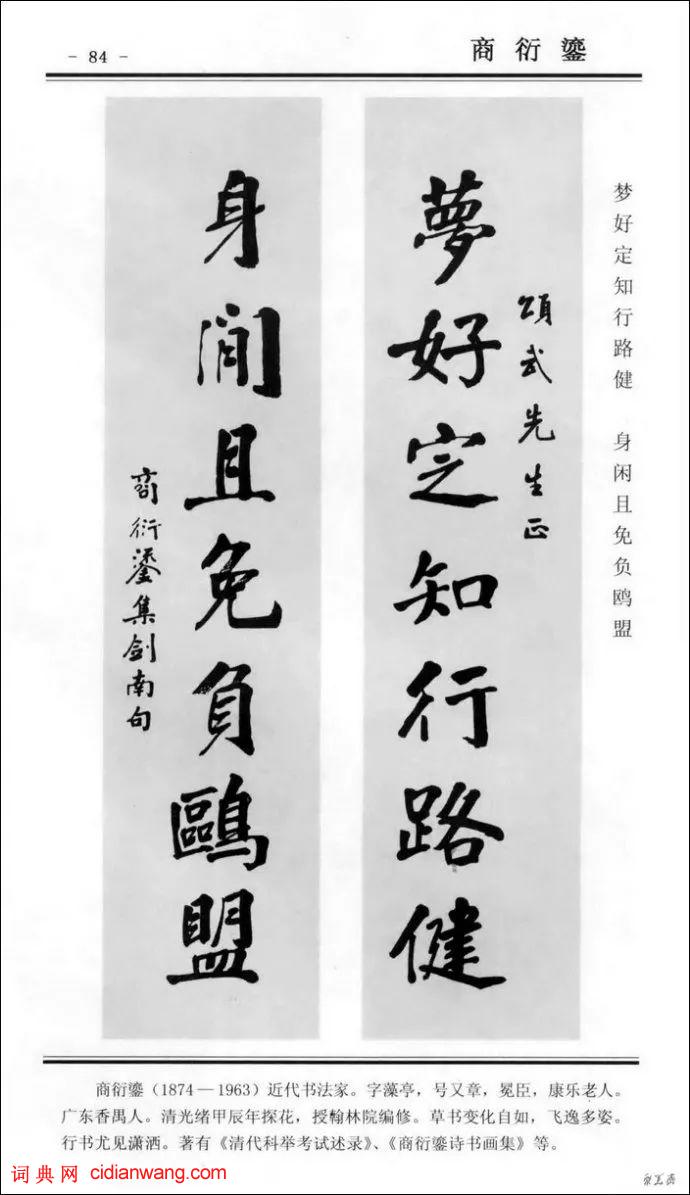 - 84 -
商衍鎏
梦好定知行路健 身闲且免负鸥盟
頌武先生正
夢好定知行路健
身閒且免負鷗盟
商衍鎏集劍南句
商衍鎏（1874—1963）近代书法家。字藻亭，号又章，冕臣，康乐老人。
广东香禺人。清光绪甲辰年探花，授翰林院编修。草书变化自如，飞逸多姿。
行书尤见潇洒。著有《清代科举考试述录》、《商衍鎏诗书画集》等。
词典网 cidianwang.com